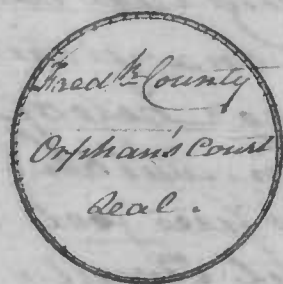 Fred.k County
Orphan's Court
Seal.